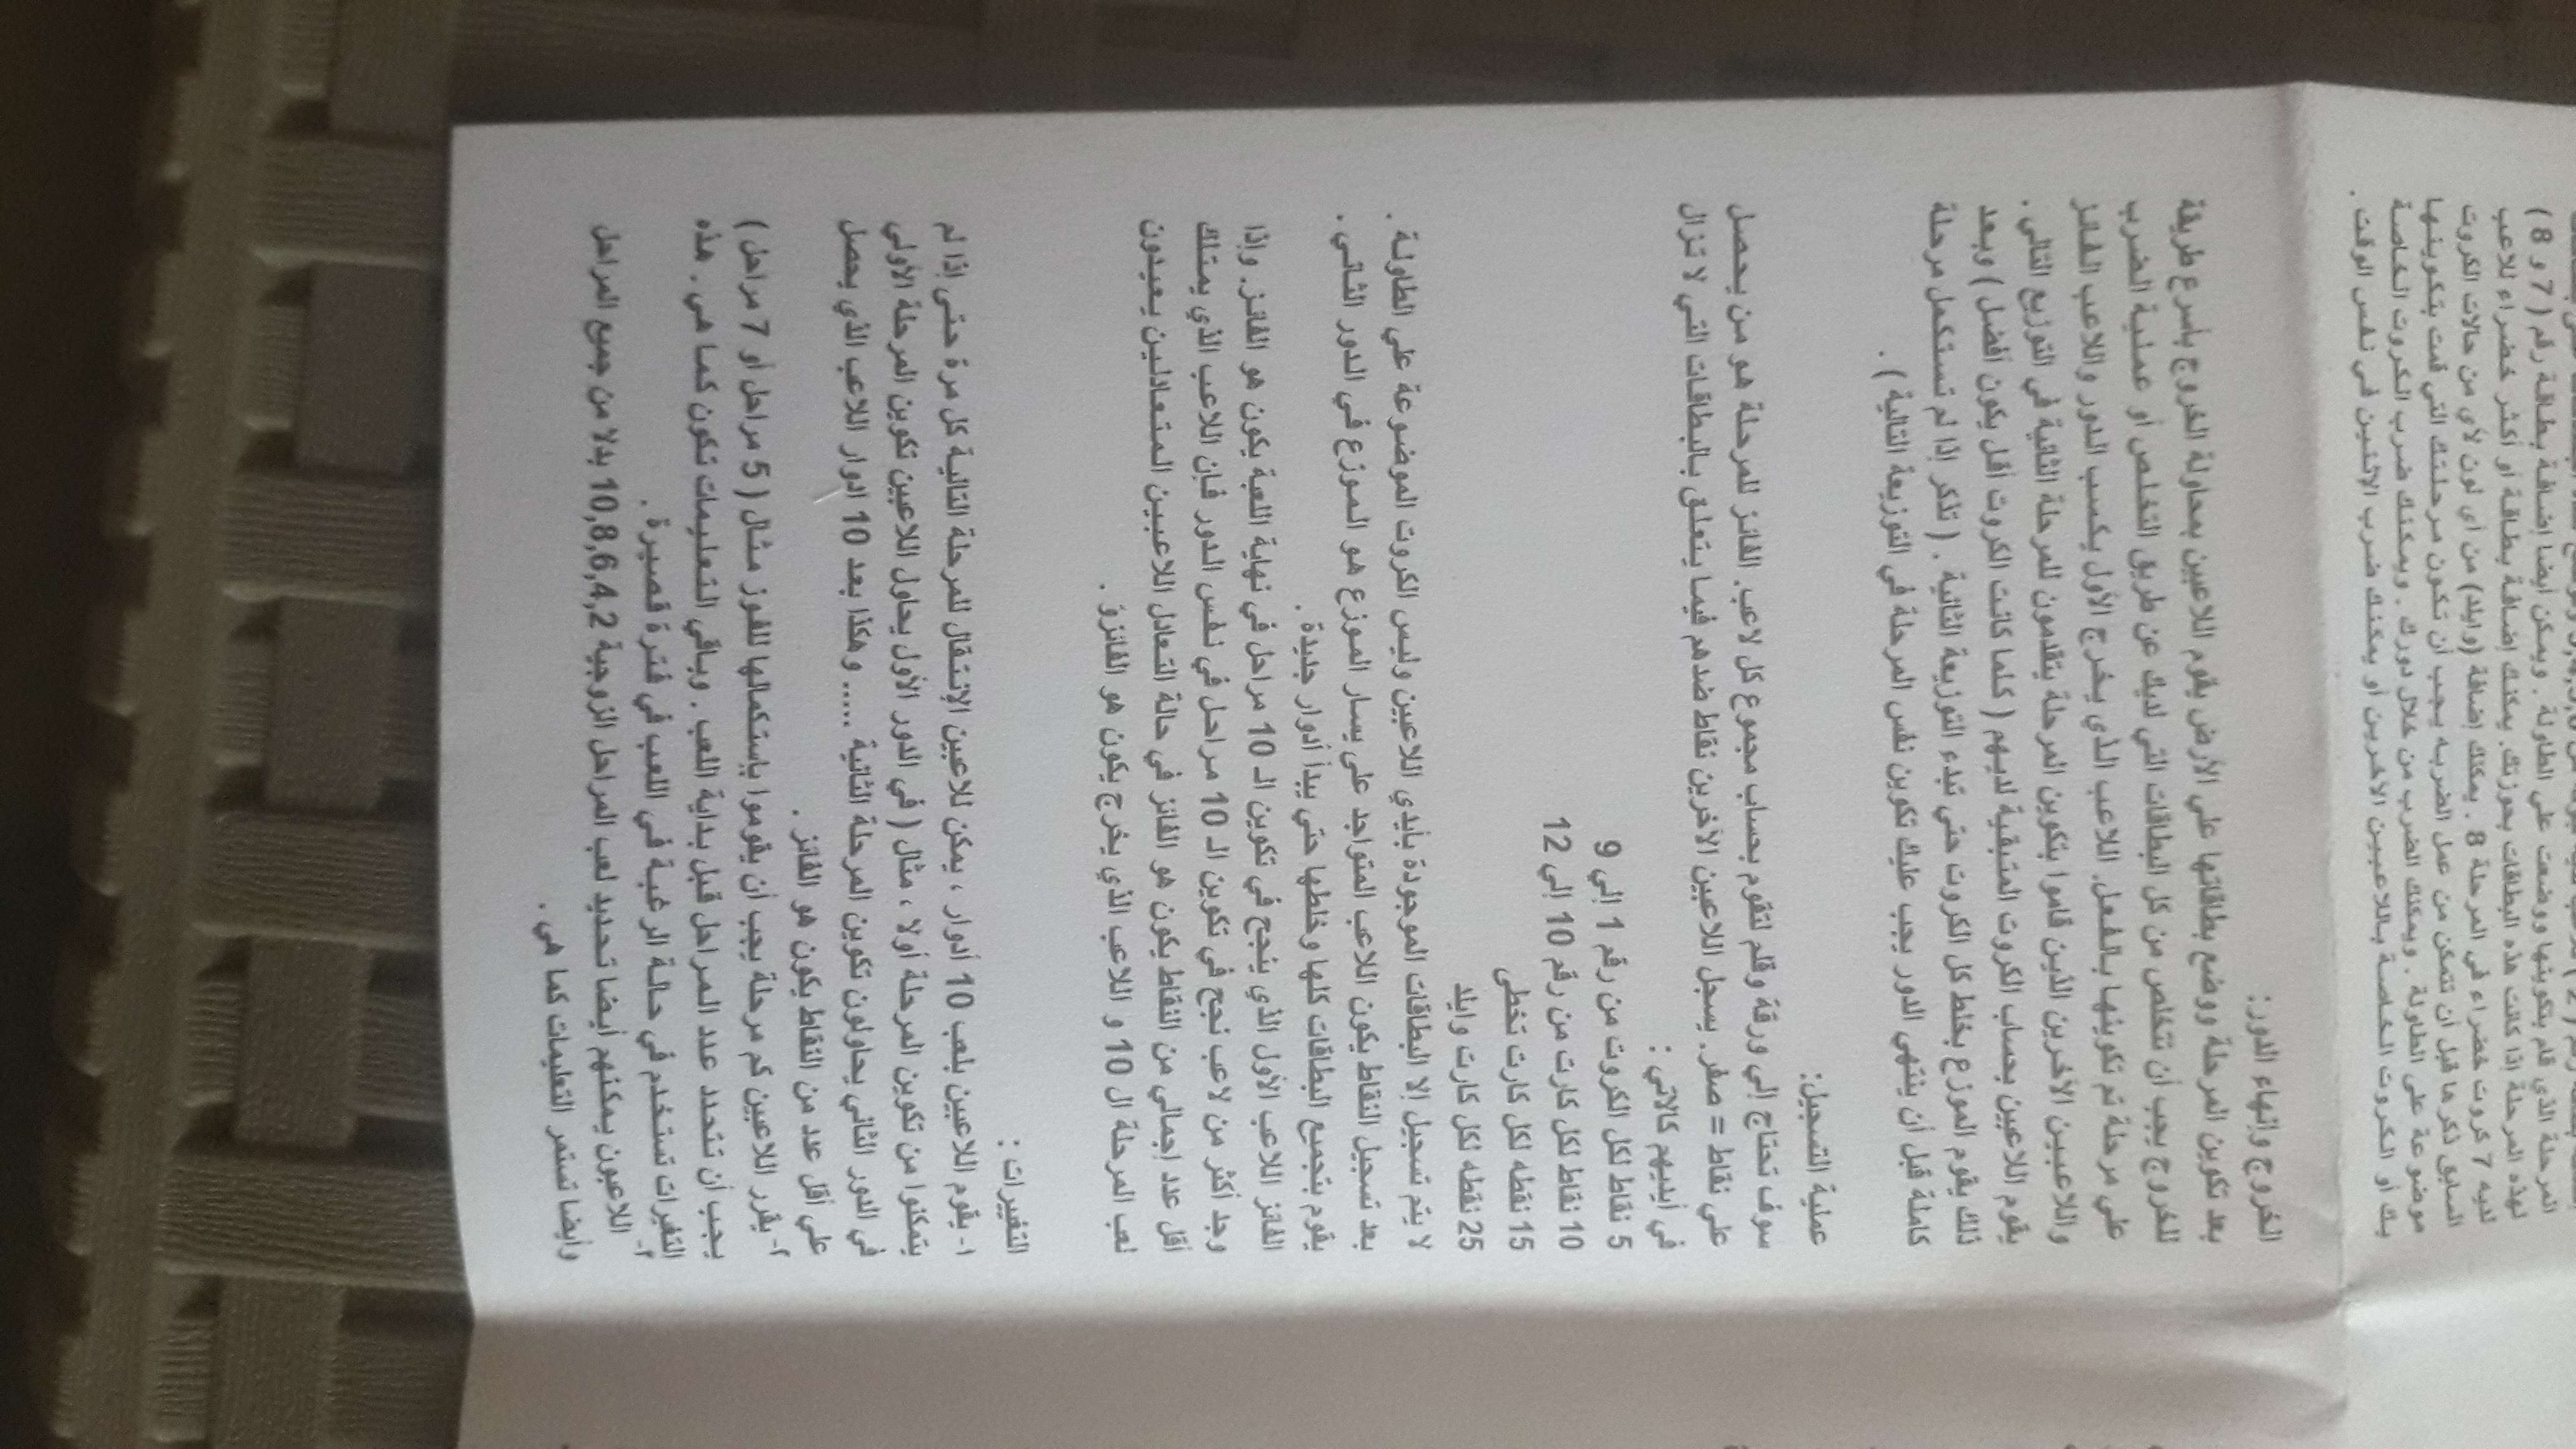 المرحلة الذي قام بتكوينها ووضعت علي الطاولة . ويمكن ايضا إضافة بطاقة رقم ( 7 و 8 )
لهذه المرحلة إذا كانت هذه البطاقات بحوزتك. يمكنك إضافة بطاقة أو أكثر خضراء للاعب
لديه 7 كروت خضراء في المرحلة 8 . يمكنك إضافة (وايلد) من أي لون لأي من حالات الكروت
السابق ذكرها قبل أن تتمكن من عمل الضربه يجب أن تكون مرحلتك التي قمت بتكوينها
موضوعة على الطاولة . ويمكنك الضرب من خلال دورك . ويمكنك ضرب الكروت الخاصة
بك أو الكروت الخاصة باللاعبين الاخرين أو يمكنك ضرب الإثنين في نفس الوقت .
الخروج وإنهاء الدور:
بعد تكوين المرحلة ووضع بطاقاتها علي الأرض يقوم اللاعبين بمحاولة الخروج بأسرع طريقة
للخروج يجب أن تتخلص من كل البطاقات التي لديك عن طريق التخلص أو عملية الضرب
علي مرحلة تم تكوينها بالفعل. اللاعب الذي يخرج الأول يكسب الدور واللاعب الفائز
واللاعبين الأخرين الذين قاموا بتكوين المرحلة يتقدمون للمرحلة الثانية في التوزيع التالي .
يقوم اللاعبين بحساب الكروت المتبقية لديهم ( كلما كانت الكروت أقل يكون أفضل ) وبعد
ذلك يقوم الموزع بخلط كل الكروت حتي تبدء التوزيعة الثانية . ( تذكر إذا لم تستكمل مرحلة
كاملة قبل أن ينتهي الدور يجب عليك تكوين نفس المرحلة في التوزيعة التالية ) .
عملية التسجيل:
سوف تحتاج إلي ورقة وقلم لتقوم بحساب مجموع كل لاعب. الفائز للمرحلة هو من يحصل
على نقاط = صفر. يسجل اللاعبين الأخرين نقاط ضدهم فيما يتعلق بالبطاقات التي لا تزال
في أيديهم كالاتي :
5 نقاط لكل الكروت من رقم 1 إلي 9
10 نقاط لكل كارت من رقم 10 إلي 12
15 نقطه لكل كارت تخطى
25 نقطه لكل كارت وايلد
لا يتم تسجيل إلا البطاقات الموجودة بأيدي اللاعبين وليس الكروت الموضوعة علي الطاولة .
بعد تسجيل النقاط يكون اللاعب المتواجد على يسار الموزع هو الموزع في الدور الثاني .
يقوم بتجميع البطاقات كلها وخلطها حتي يبدأ أدوار جديدة .
الفائز اللاعب الأول الذي ينجح في تكوين الـ 10 مراحل في نهاية اللعبة يكون هو الفائز. وإذا
وجد أكثر من لاعب نجح في تكوين الـ 10 مراحل في نفس الدور فإن اللاعب الذي يمتلك
أقل عدد إجمالي من النقاط يكون هو الفائز في حالة التعادل اللاعبين المتعادلين يعيدون
لعب المرحلة ال 10 و اللاعب الذي يخرج يكون هو الفائزؤ .
التغييرات :
١- يقوم اللاعبين بلعب 10 أدوار ، يمكن للاعبين الإنتقال للمرحلة التالية كل مرة حتى إذا لم
يتمكنوا من تكوين المرحلة أولا ، مثال ( في الدور الأول يحاول اللاعبين تكوين المرحلة الأولي
في الدور الثاني يحاولون تكوين المرحلة الثانية ..... وهكذا بعد 10 ادوار اللاعب الذي يحصل
علي أقل عدد من النقاط يكون هو الفائز .
٢- يقرر اللاعبين كم مرحلة يجب أن يقوموا بإستكمالها للفوز مثال ( 5 مراحل أو 7 مراحل )
يجب أن تتحدد عدد المراحل قبل بداية اللعب . وباقي التعليمات تكون كما هي . هذه
التغيرات تستخدم في حالة الرغبة في اللعب في فترة قصيرة .
٣- اللاعبون يمكنهم أيضا تحديد لعب المراحل الزوجية 10,8,6,4,2 بدلا من جميع المراحل
وأيضا تستمر التعليمات كما هي .